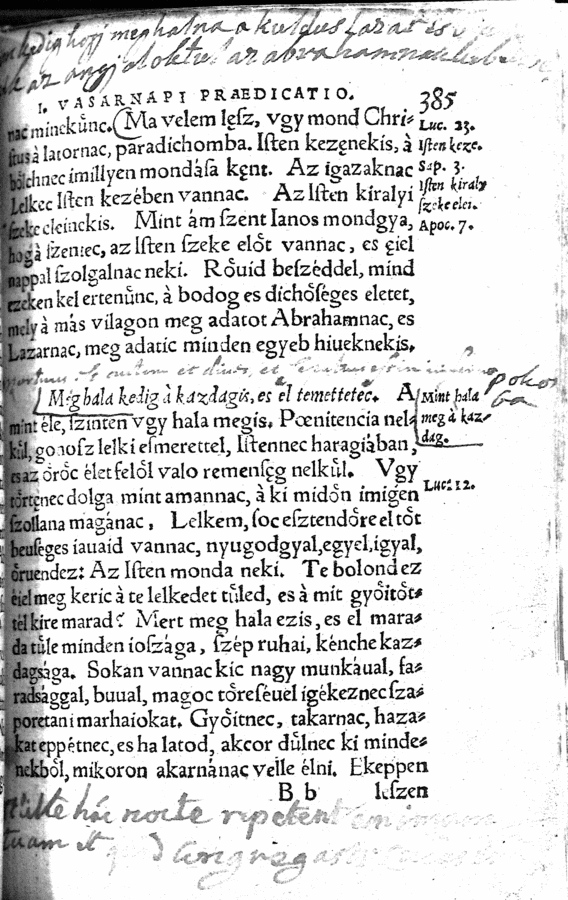 kedig hogj meghalna a kuldus Lazar es
az angjaloktul az abrahamnak
I. VASARNAPI PRAEDICATIO.
385
nac minekűnc. (Ma velem lęsz, vgy mond Chri⸗
stus à latornac, paradichomba. Isten kezęnekis, à
bőlchnec imillyen mondása kęnt. Az igazaknac
Lelkec Isten kezében vannac. Az Isten kiralyi
szeke eleinekis. Mint ám szent Ianos mondgya,
hogà szentec, az Isten szeke előt vannac, es ęiel
nappal szolgalnac neki. Rőuid beszéddel, mind
ezeken kel ertenűnc, à bodog es dichősęges eletet,
mely à más vilagon meg adatot Abrahamnac, es
Lazarnac, meg adatic minden egyeb hiueknekis.
Luc. 23.
Isten keze.
Sap. 3.
Isten kiraly
szeke elei.
Apoc. 7.
mortuus est autem et diues, et sepultus est in inferno
Meg hala kedig à kazdagis, es el temettetéc. A
mint éle, szinten vgy hala megis. Pœnitencia nel⸗
kűl, gonosz lelki esmerettel, Istennec haragiában,
es az őrőc élet felől valo remensęg nelkűl. Vgy
tőrtęnec dolga mint amannac, à ki midőn imigen
szollana magánac, Lelkem, soc esztendőre el tőt
beuseges iauaid vannac, nyugodgyal, egyel, igyal,
őruendez: Az Isten monda neki. Te bolond ez
éiel meg keric à te lelkedet tűled, es à mit győitőt⸗
tél kire marad? Mert meg hala ezis, es el mara⸗
da tűle minden ioszága, szép ruhai, kénche kaz⸗
dagsága. Sokan vannac kic nagy munkáual, fa⸗
radsággal, buual, magoc tőreséuel igékeznec sza⸗
poretani marhaiokat. Győitnec, takarnac, haza⸗
kat eppétnec, es ha latod, akcor dűlnec ki minde⸗
nekből, mikoron akarnánac velle élni. Ekeppen
Mint hala
meg à kaz⸗
dag.
pokol
ba
Luc: 12.
B b
leszen
stulte hác nocte repetent animam
tuam et quod congregasti